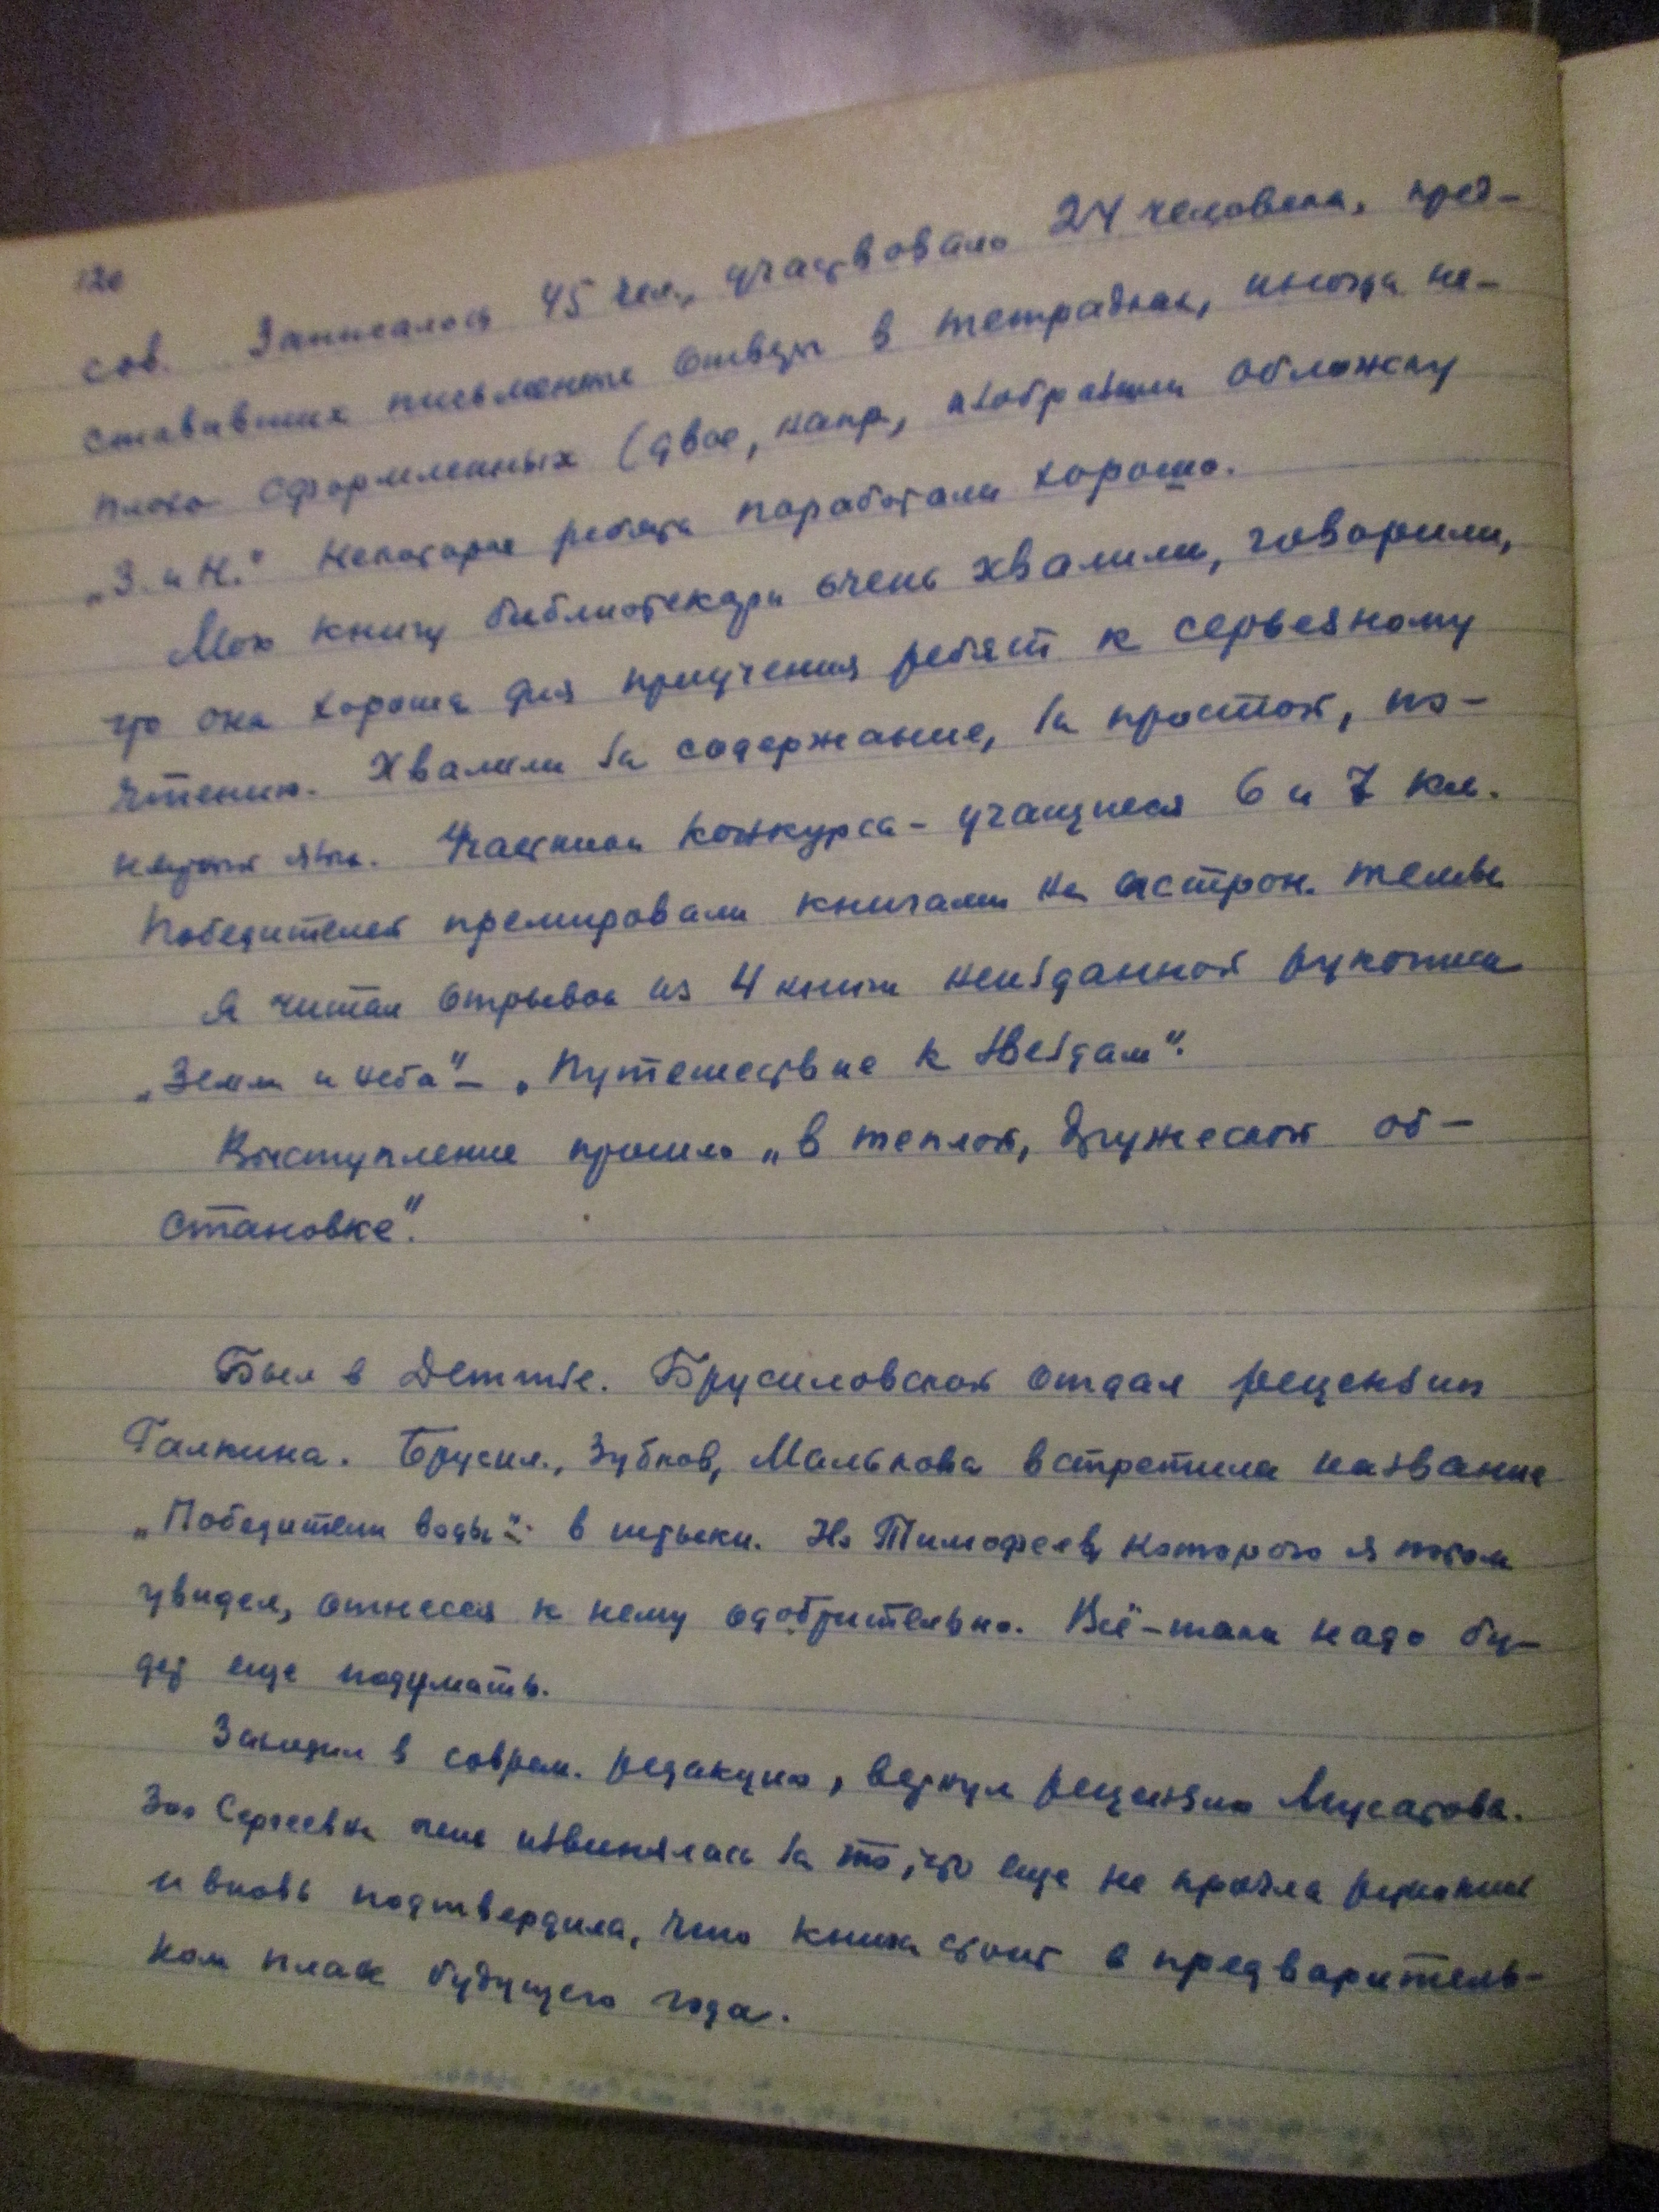 120
сов. Записалось 45 чел., участвовало 24 человека, пред-
ставивших письменные ответы в тетрадках, иногда не-
плохо оформленных (двое, напр., изобразили обложку
„З. и Н.“ Некоторые ребята поработали хорошо.
Мою книгу библиотекари очень хвалили, говорили,
что она хороша для приучения ребят к серьезному
чтению. Хвалили за содержание, за простой, по-
нятный язык. Участники конкурса – учащиеся 6 и 7 кл.
Победителей премировали книгами на астрон. темы
Я читал отрывок из 4 книги неизданной рукописи
„Земли и неба“ – „Путешествие к звездам“.
Выступление прошло „в теплой, дружеской об-
становке“.
Был в Детгизе. Брусиловской отдал рецензию
Галкина. Брусил., Зубков, Малькова встретили название
„Победители воды“ в штыки. Но Тимофеев, которого я потом
увидел, отнесся к нему одобрительно. Всё-таки надо бу-
дет еще подумать.
Заходил в соврем. редакцию, вернул рецензию Мусатова.
Зоя Сергеевна очень извинялась за то, что еще не прочла рукопись
и вновь подтвердила, что книга стоит в предваритель-
ном плане будущего года.